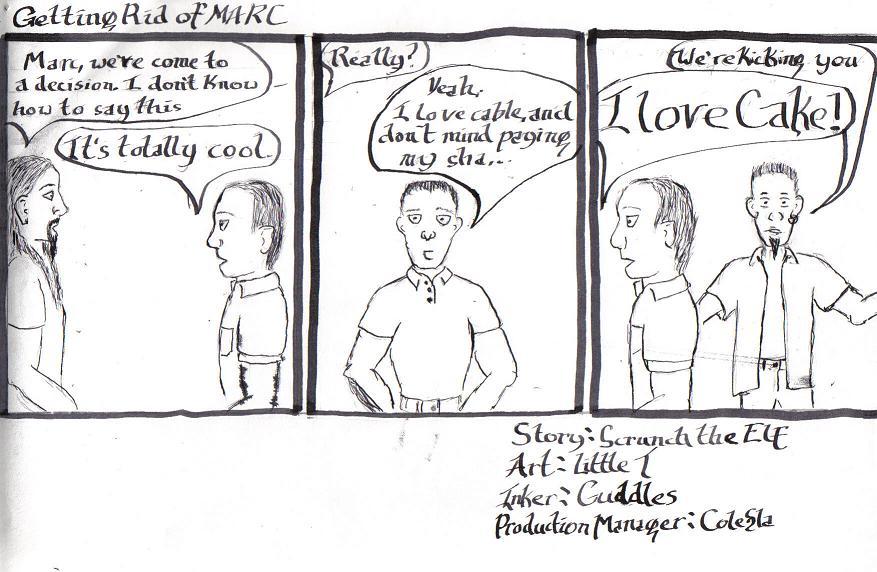 Getting Rid of MARC
Marc, we're come to
a decision. I don't know
how to say this
It's totally cool.
Really?
Yeah.
I love cable, and
don't mind paging
my sha...
We're kicking you
I love Cake!
Story: Scrunch the Elf
Art: little T
Inker: Cuddles
Production Manager: ColeSla